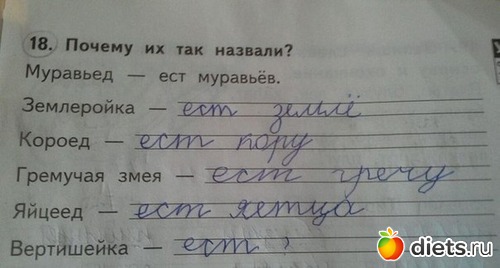 18. Почему их так назвали?
Муравьед — ест муравьёв.
Землеройка — ест землё
Короед — ест кору
Гремучая змея — ест гречу
Яйцеед — ест яетца
Вертишейка — ест ?
diets.ru